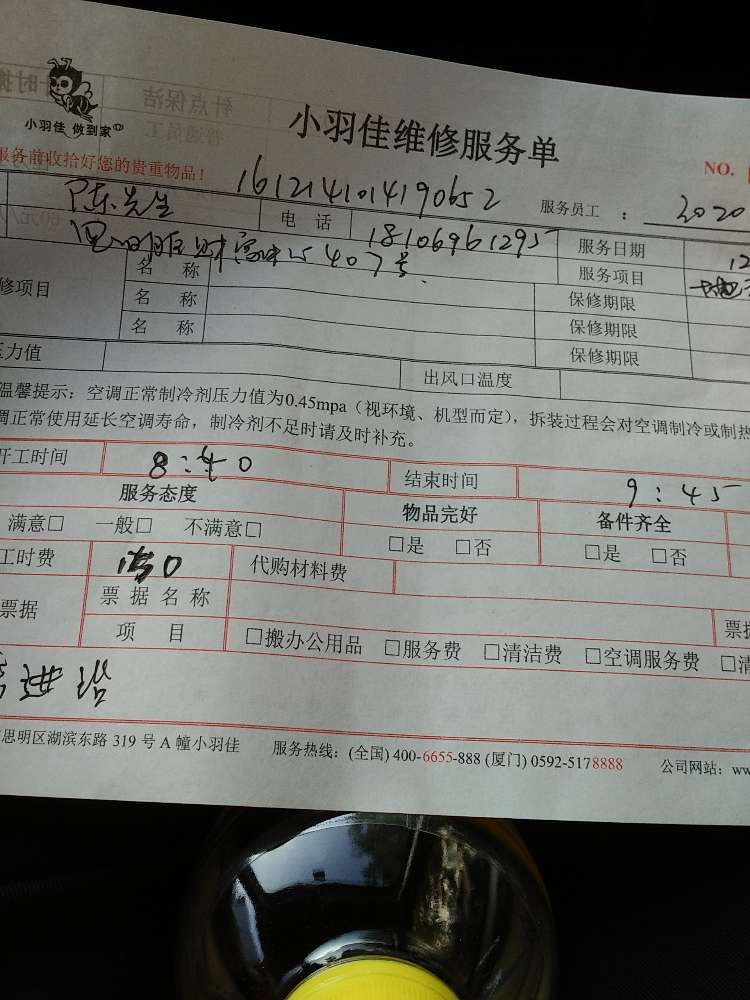 小羽佳 做到家
小羽佳维修服务单
服务前收拾好您的贵重物品！
NO.
1612141014190652
服务员工 ： 2020
陈先生 电 话 18106961295 服务日期 12
407号 服务项目
修项目 名 称 保修期限
名 称 保修期限
名 称 保修期限
压力值 出风口温度
温馨提示：空调正常制冷剂压力值为0.45mpa（视环境、机型而定），拆装过程会对空调制冷或制热
调正常使用延长空调寿命，制冷剂不足时请及时补充。
开工时间 8:40 结束时间 9:45
服务态度 物品完好 备件齐全
满意□ 一般□ 不满意□ □是 □否 □是 □否
工时费 代购材料费
票据 票 据 名 称 票据
项 目 □搬办公用品 □服务费 □清洁费 □空调服务费 □清
思明区湖滨东路 319 号 A 幢小羽佳 服务热线：(全国) 400-6655-888 (厦门) 0592-5178888 公司网站：ww